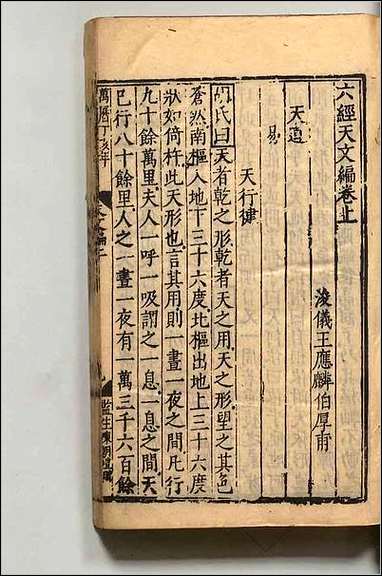 六經天文編卷上
浚儀王應麟伯厚甫
天道
易
天行健
胡氏曰天者乾之形乾者天之用天之形望之其色
蒼然南樞入地下三十六度北樞出地上三十六度
狀如倚杵此天形也言其用則一晝一夜之間凡行
九十餘萬里夫人一呼一吸謂之一息一息之間天
已行八十餘里人之一晝一夜有一萬三千六百餘
萬曆丁亥年
監生陳明